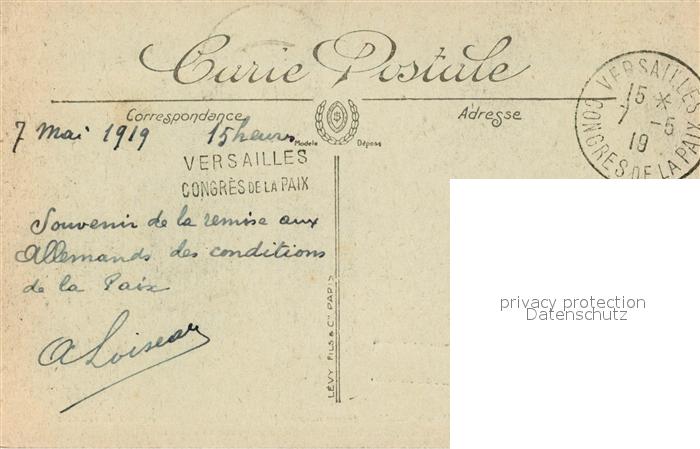 Carte Postale
Correspondance
Adresse
7 Mai 1919 15 heures
Modèle Déposé
VERSAILLES
CONGRÈS DE LA PAIX
VERSAILLES
15 *
7 -5
19
CONGRES DE LA PAIX
Souvenir de la remise aux
Allemands des conditions
de la Paix
A Loiseau
LÉVY FILS & Cie PARIS
privacy protection
Datenschutz